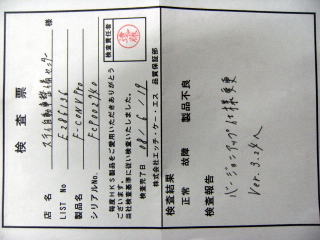 検査票
店名 スズキ自動車整備センター 様
LIST No E286126
製品名 F-CON V Pro
シリアルNo.
毎度HKS製品をご愛用いただきありがとうございます。
当社検査基準に従い検査いたしました。
検査完了日 08/6/19
株式会社エッチ・ケー・エス 品質保証部
検査責任者
検査結果
正常 故障 製品不良
検査報告
バージョンアップ仕様変更
Ver.3.24へ